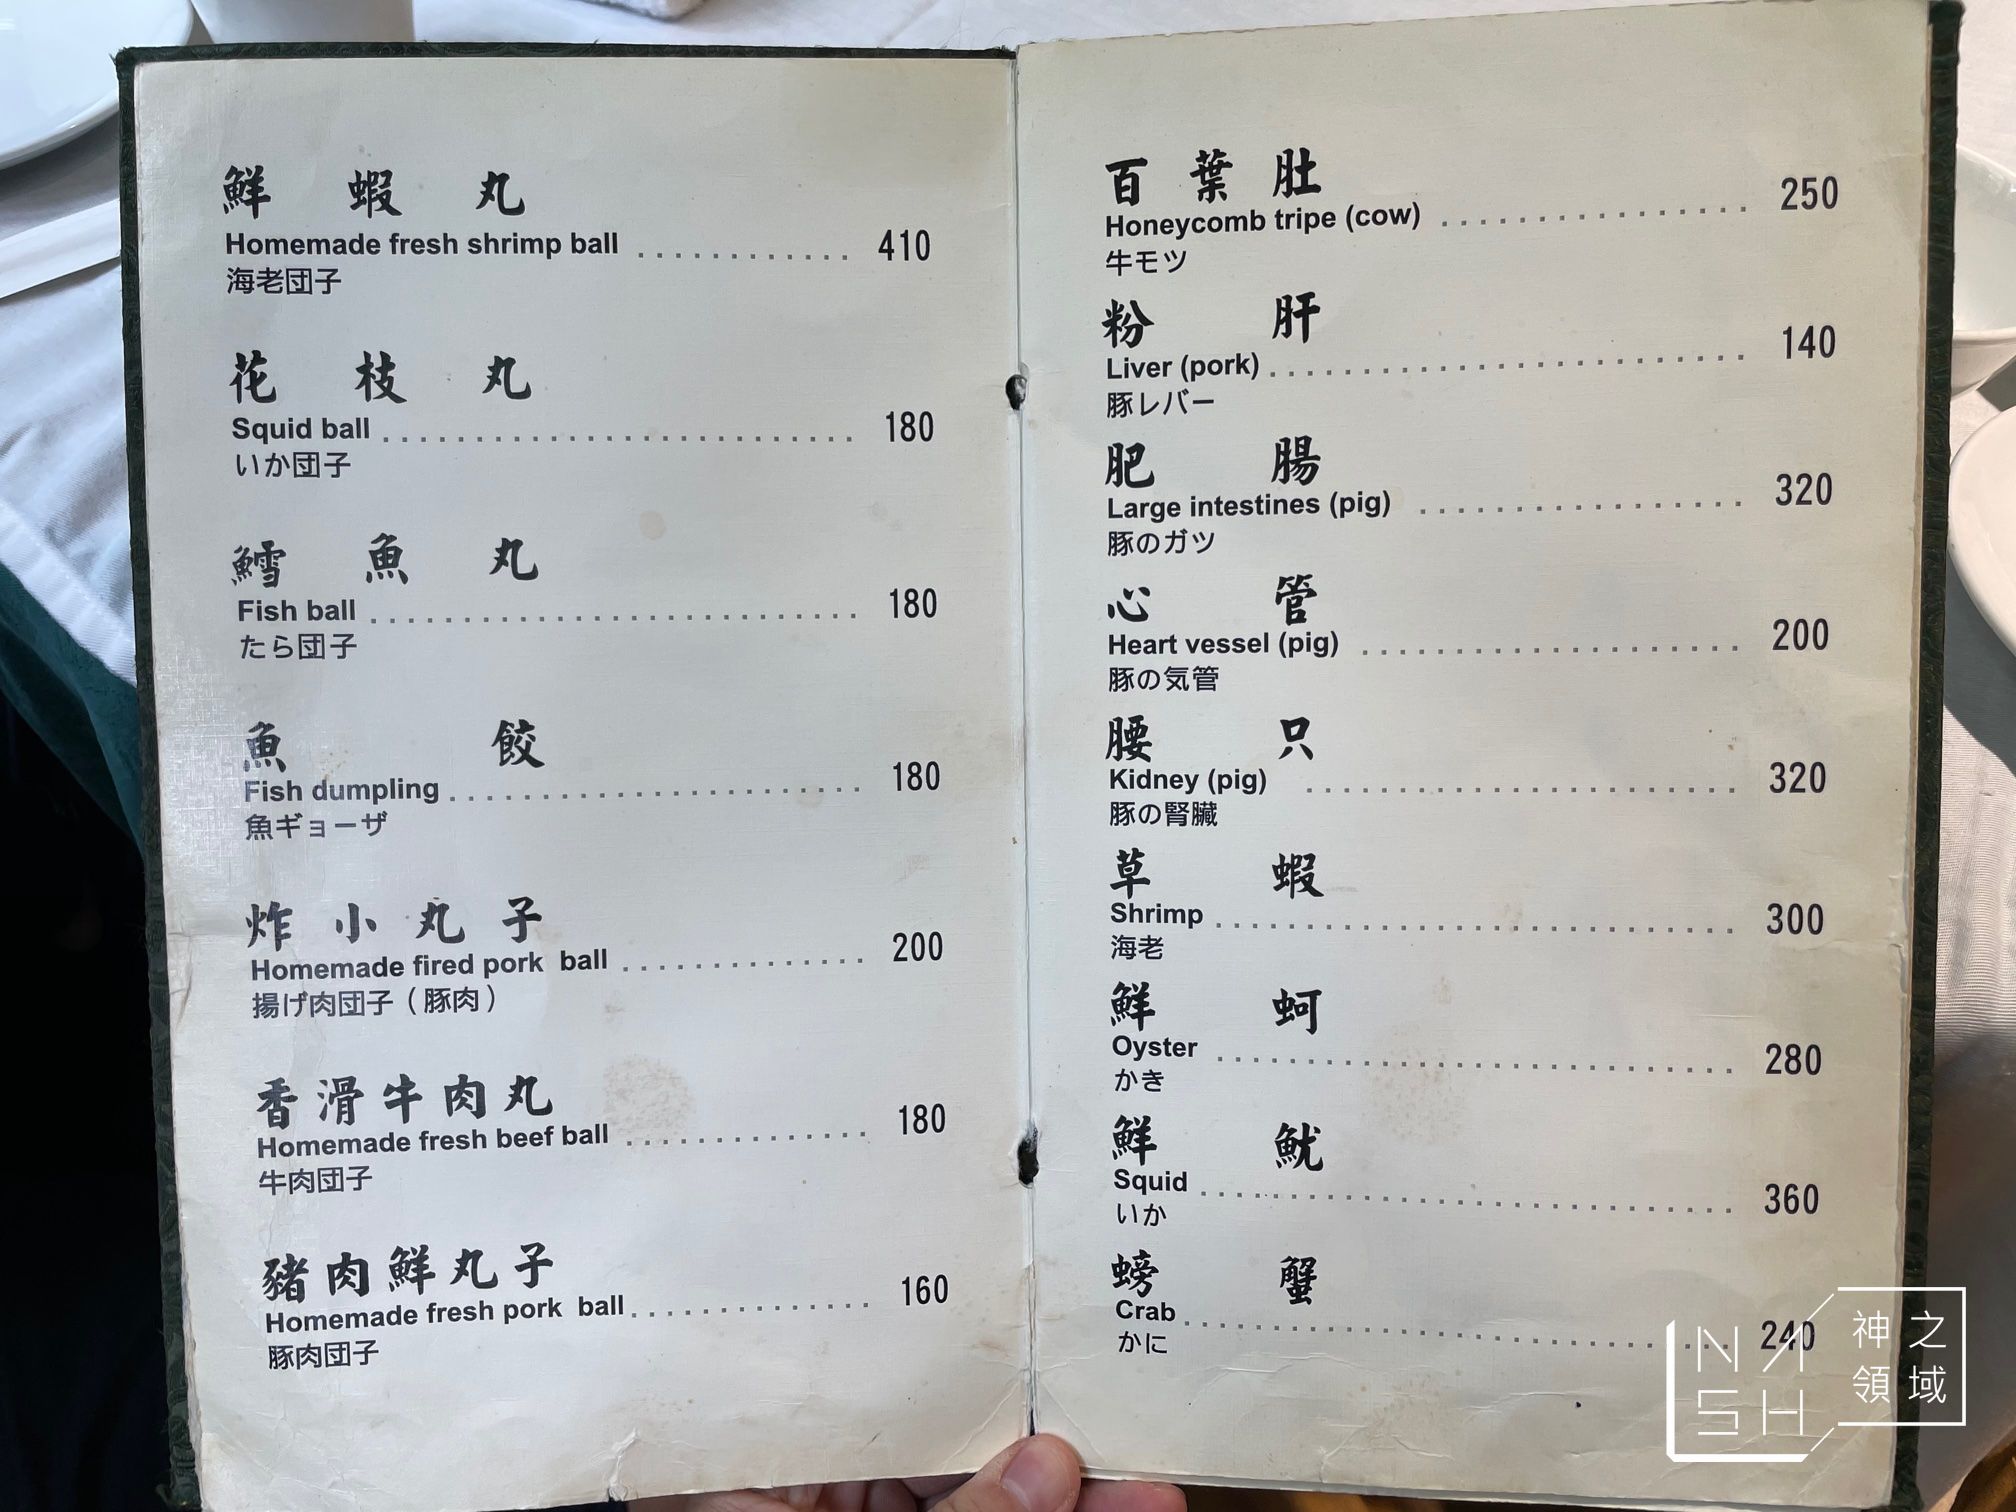 鮮蝦丸
Homemade fresh shrimp ball ............ 410
海老団子
花枝丸
Squid ball ........................ 180
いか団子
鱈魚丸
Fish ball ......................... 180
たら団子
魚餃
Fish dumpling ...................... 180
魚ギョーザ
炸小丸子
Homemade fired pork ball ............. 200
揚げ肉団子(豚肉)
香滑牛肉丸
Homemade fresh beef ball ............. 180
牛肉団子
豬肉鮮丸子
Homemade fresh pork ball ............. 160
豚肉団子
百葉肚
Honeycomb tripe (cow) ................ 250
牛モツ
粉肝
Liver (pork) .......................... 140
豚レバー
肥腸
Large intestines (pig) ................. 320
豚のガツ
心管
Heart vessel (pig) .................... 200
豚の気管
腰只
Kidney (pig) ....................... 320
豚の腎臓
草蝦
Shrimp ............................ 300
海老
鮮蚵
Oyster ............................ 280
かき
鮮魷
Squid ............................. 360
いか
螃蟹
Crab .............................. 240
かに
NASH
神之領域